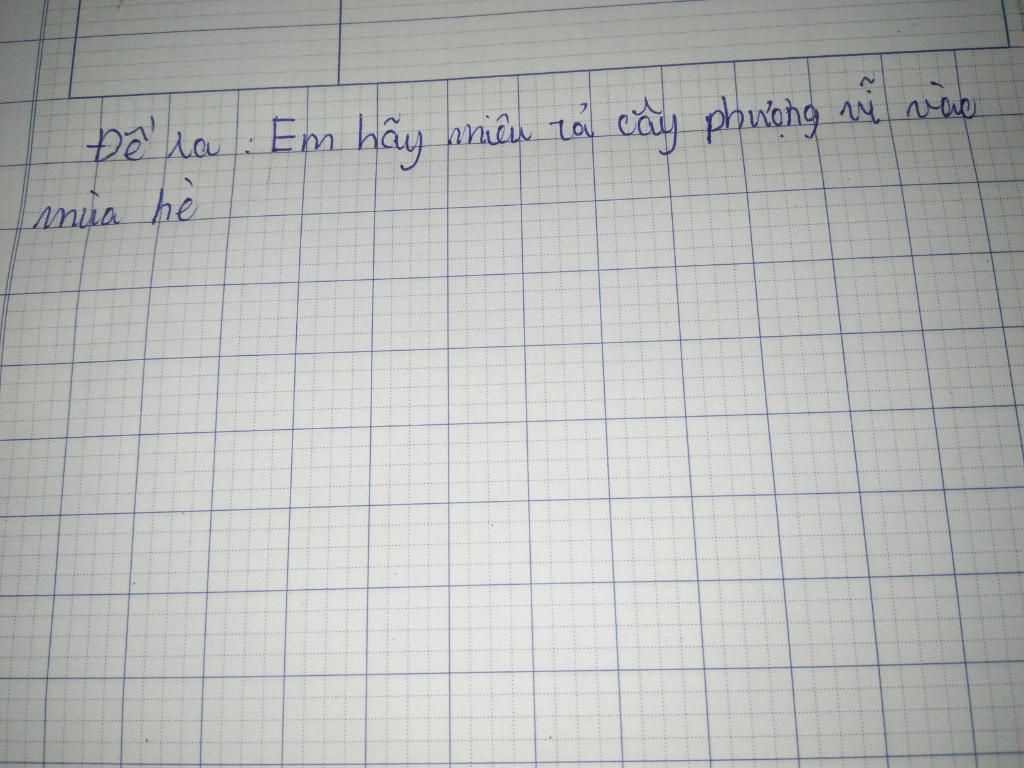 Đề ra : Em hãy miêu tả cây phượng vĩ vào
mùa hè